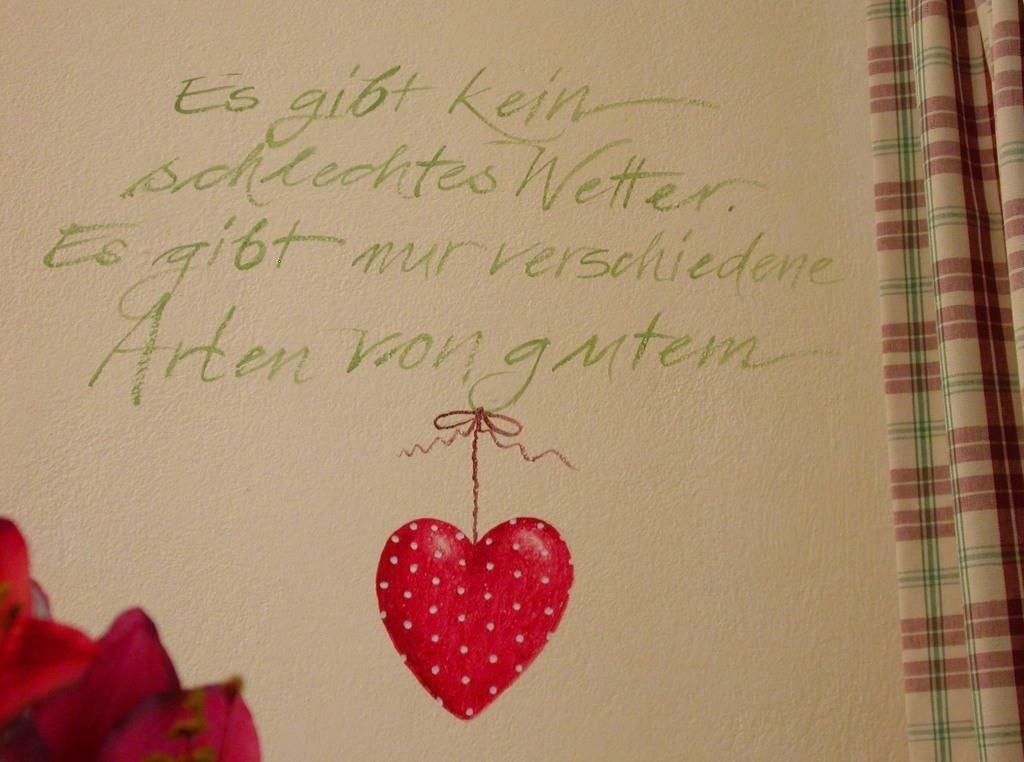 Es gibt kein
schlechtes Wetter.
Es gibt nur verschiedene
Arten von gutem